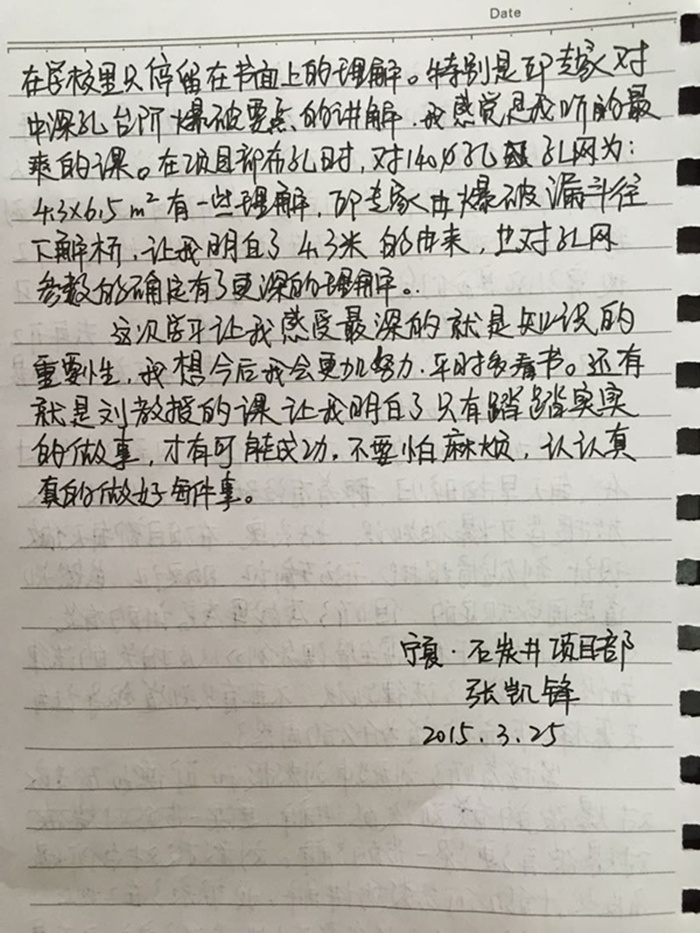 Date
在学校里只停留在书面上的理解。特别是邵专家对
中深孔台阶爆破要点的讲解，我感觉是我听的最
爽的课。在项目部布孔时，对140φ孔 孔网为：
4.3×6.5m²有一些理解，邵专家由爆破漏斗往
下解析，让我明白了4.3米的由来，也对孔网
参数的确定有了更深的理解。
这次学习让我感受最深的就是知识的
重要性，我想今后我会更加努力，平时多看书。还有
就是刘教授的课让我明白了只有踏踏实实
的做事，才有可能成功，不要怕麻烦，认认真
真的做好每件事。
宁夏·石炭井项目部
张凯锋
2015.3.25